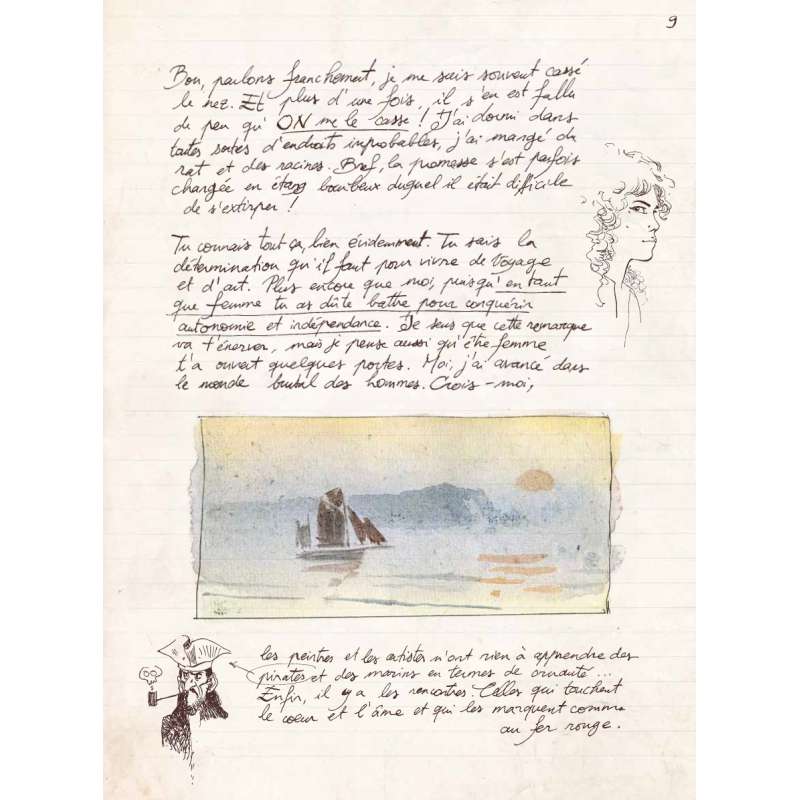 9
Bon, parlons franchement, je me suis souvent cassé
le nez. Et plus d'une fois, il s'en est fallu
de peu qu'ON me le casse ! J'ai dormi dans
toutes sortes d'endroits improbables, j'ai mangé du
rat et des racines. Bref, la promesse s'est parfois
changée en étang bourbeux duquel il était difficile
de s'extirper !
Tu connais tout ça, bien évidemment. Tu sais la
détermination qu'il faut pour vivre de Voyage
et d'art. Plus encore que moi, puisqu'en tant
que femme tu as dûte battre pour conquérir
autonomie et indépendance. Je sens que cette remarque
va t'énerver, mais je pense aussi qu'être femme
t'a ouvert quelques portes. Moi, j'ai avancé dans
le monde brutal des hommes. Crois-moi,
les peintres et les artistes n'ont rien à apprendre des
pirates et des marins en termes de cruauté ...
Enfin, il y a les rencontres. Celles qui touchent
le cœur et l'âme et qui les marquent comme
au fer rouge.